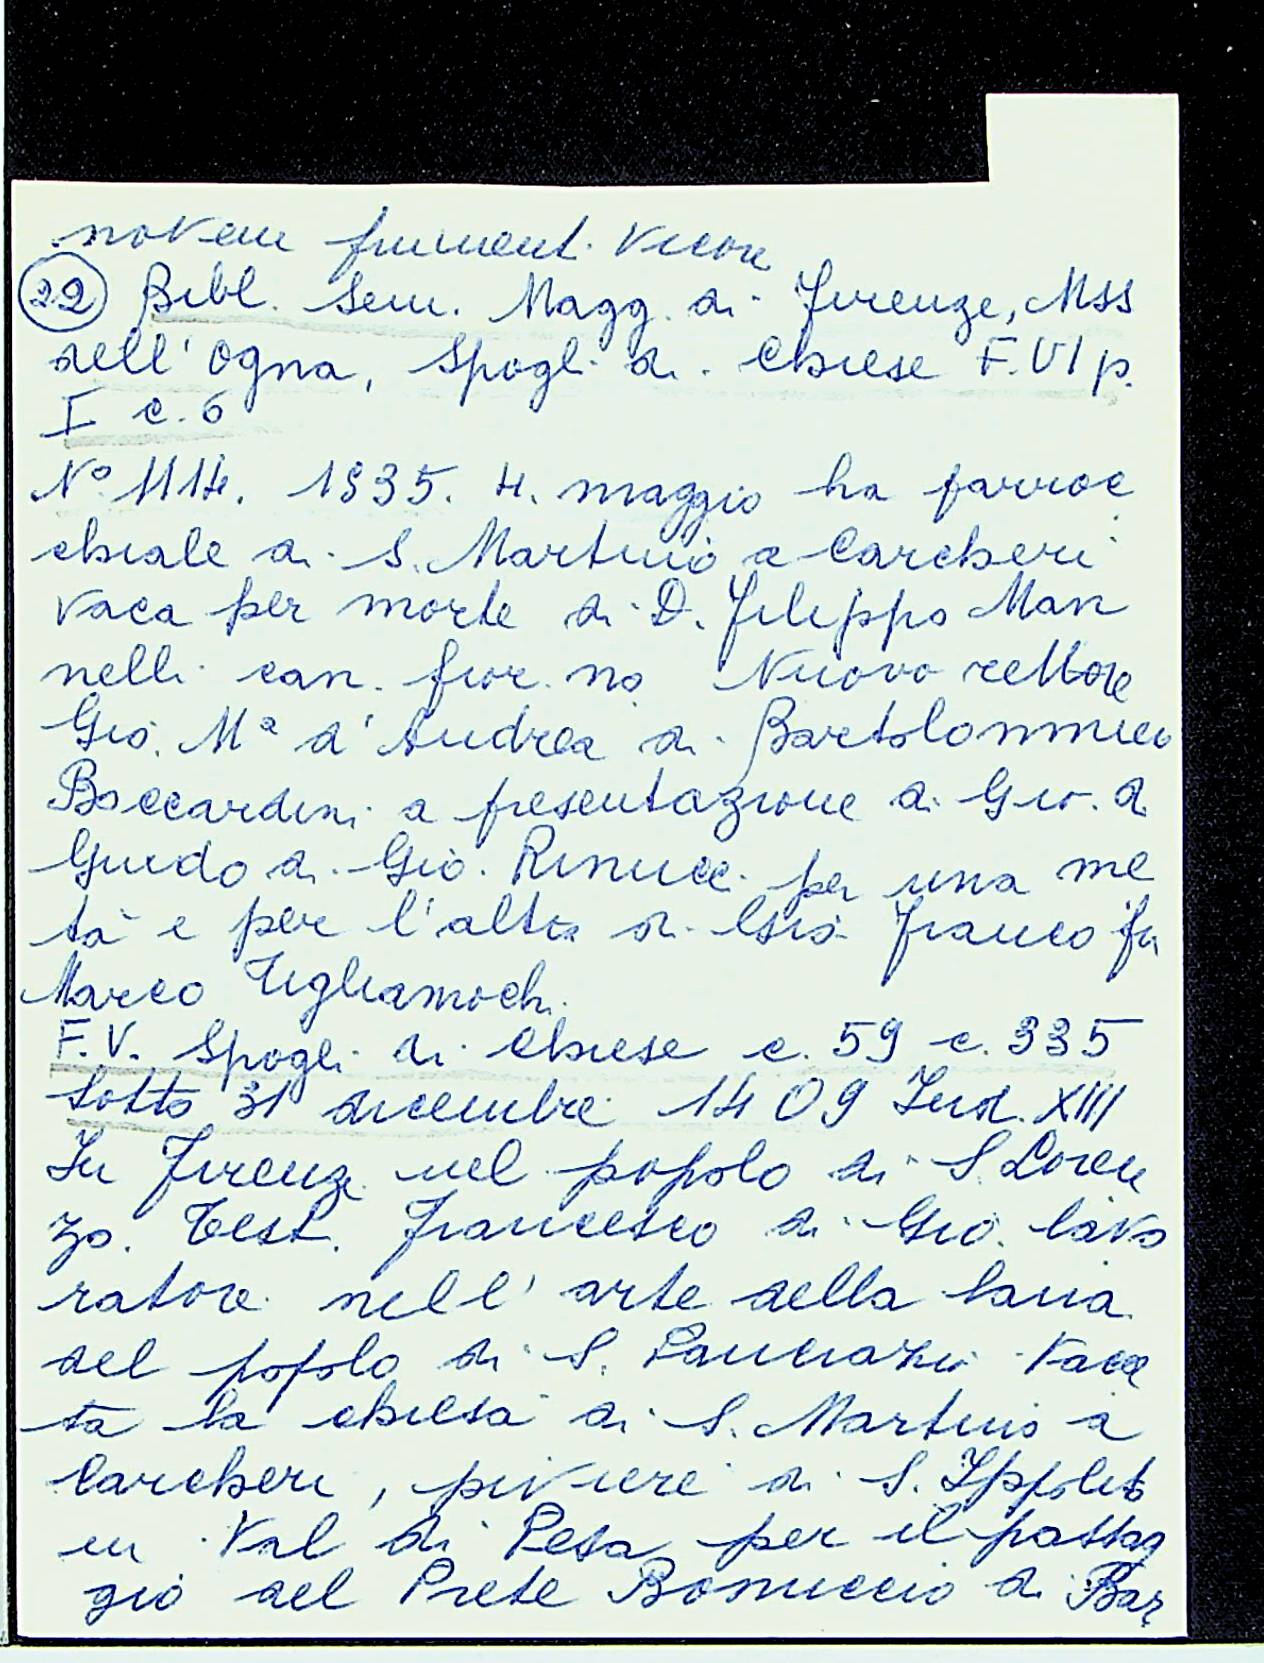 novem frument. Vicore
22 Bibl. Sem. Magg. di Firenze, Mss
dell'Ogna, Spogli di Chiese F. VI p.
I c. 6
N° 1114. 1535. 4. maggio la parroc
chiale di S. Martino a Carcheri
vaca per morte di D. Filippo Man
nelli can. fior. no Nuovo rettore
Gio. Mª d'Andrea di Bartolommeo
Boccardini a presentazione di Gio. di
Guido di Gio. Rinucci per una me
tà e per l'altra di Gio Franco fu
Marco Tigliamochi.
F.V. Spogli di Chiese c. 59 c. 335
Sotto 31 dicembre 1409 Ind. XIII
In Firenze nel popolo di S. Loren
zo. Test. Francesco di Gio. lavo
ratore nell'arte della lana
del popolo di S. Pancrazio Vaca
ta la chiesa di S. Martino a
Carcheri, piviere di S. Ippolito
in Val di Pesa per il passag
gio del Prete Bonuccio di Bar